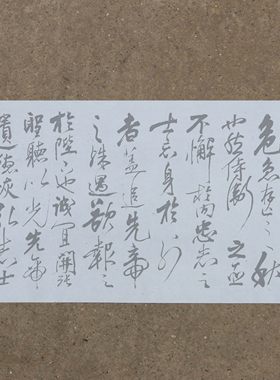 危急存亡之秋
也然侍衛之臣
不懈於内忠志之
士忘身於外
者盖追先帝
之殊遇欲報之
於陛下也誠宜開張
聖聽以光先帝
遺德恢弘志士